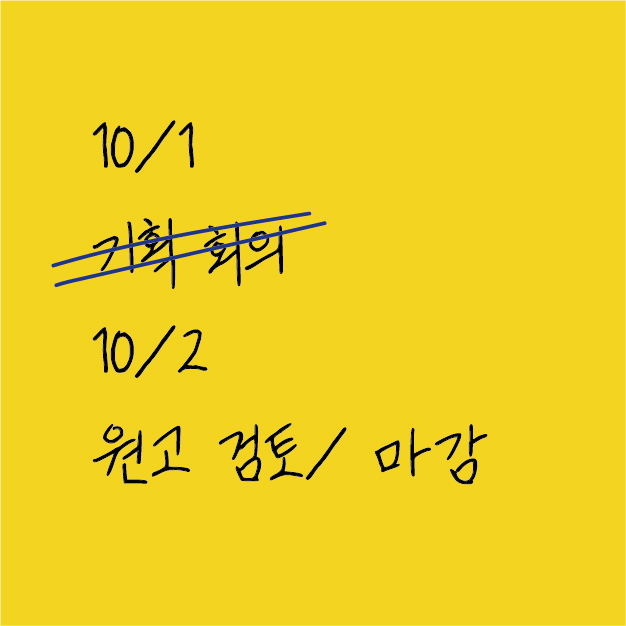 10/1
기획 회의
10/2
원고 검토/ 마감